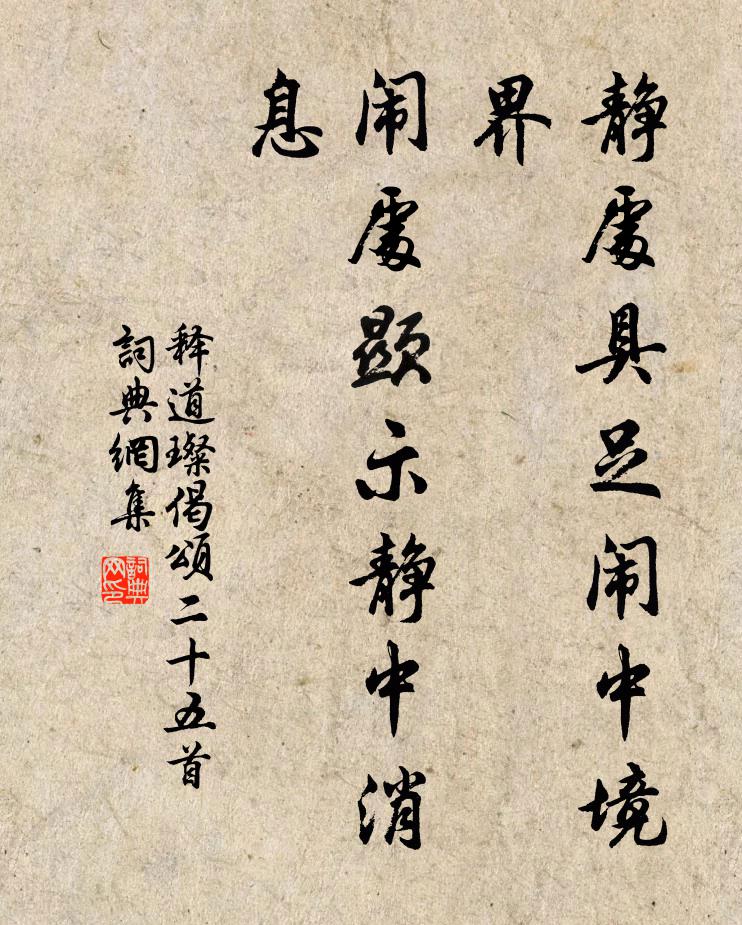 静處具足闹中境
界
闹處顯示静中消
息
释道璨偈頌二十五首
詞典網集
詞典网印